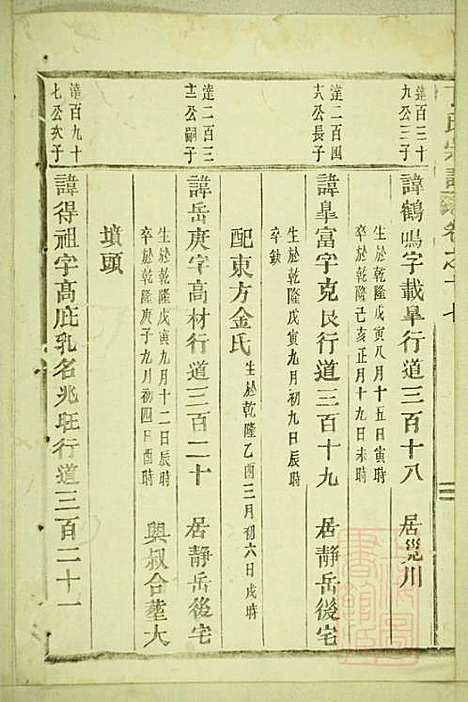 丁氏宗譜 卷之十七
達百三十
九公三子
諱鶴鳴字載皐行道三百十八 居兕川
生於乾隆戊寅八月十五日寅時
卒於乾隆己亥正月十九日未時
達二百四
十六公長子
諱皐富字克良行道三百十九 居靜岳後宅
生於乾隆戊寅九月初九日辰時
卒缺
配東方金氏 生於乾隆乙酉三月初六日戌時
達二百三
十三公嗣子
諱岳庚字高材行道三百二十 居靜岳後宅
生於乾隆戊寅九月十二日辰時
卒於乾隆庚子九月初四日酉時
與叔合塟大
墳頭
達百九十
七公次子
諱得祖字高庇乳名兆旺行道三百二十一